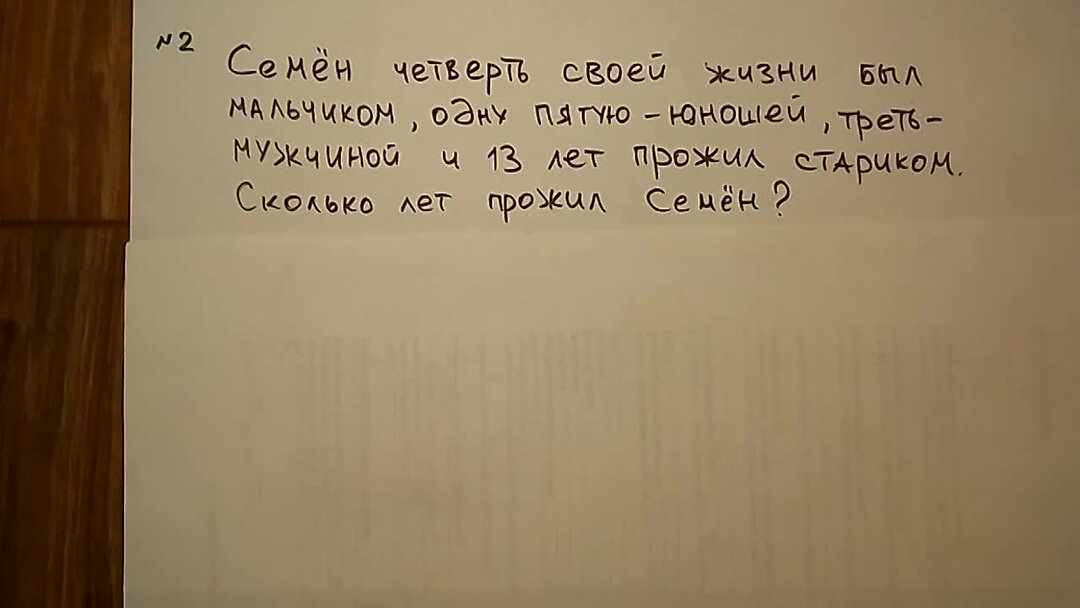 №2
Семён четверть своей жизни был
мальчиком, одну пятую - юношей, треть-
мужчиной и 13 лет прожил стариком.
Сколько лет прожил Семён?